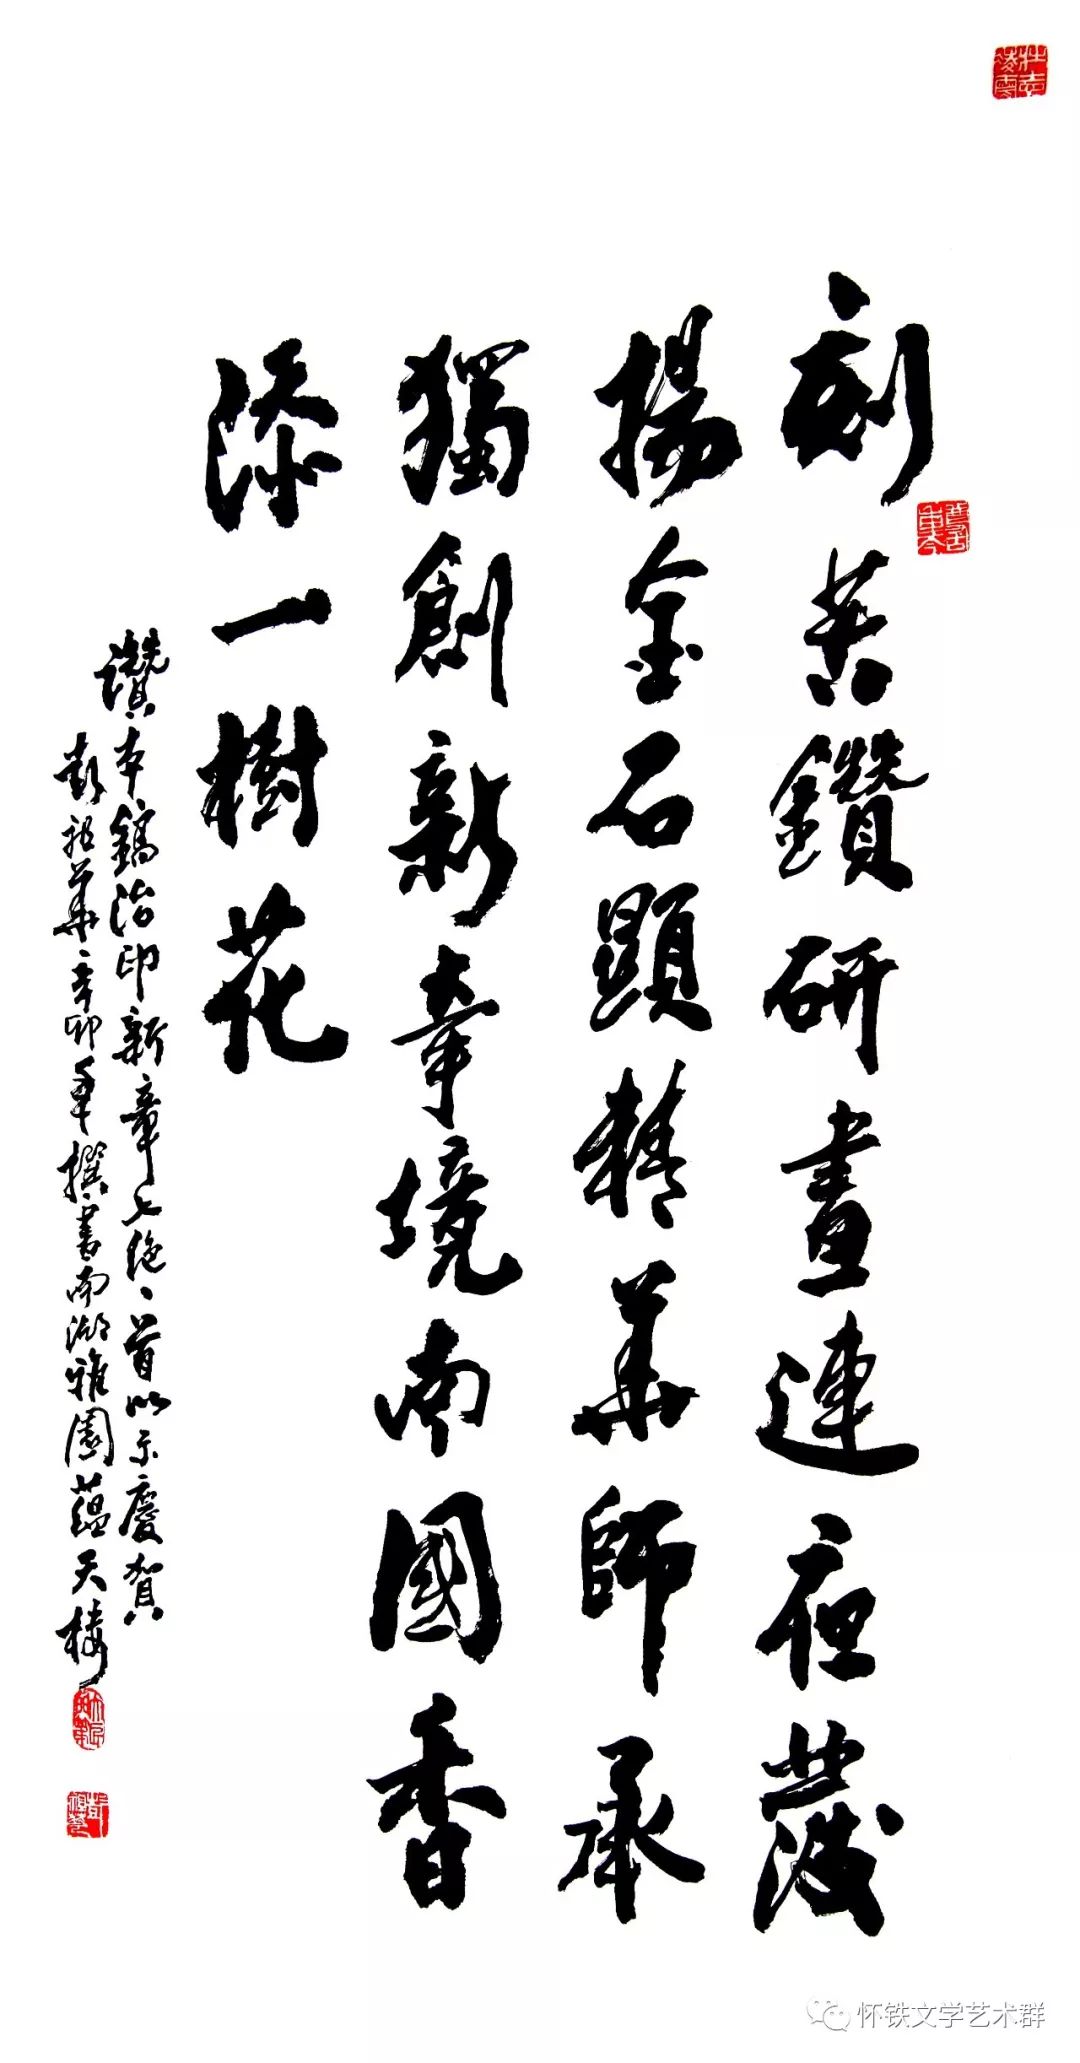 壮志凌雲
刻苦鑽研晝連夜發
揚金石顯精華師承
獨創新章境南國香
添一樹花
讚本鎬治印新章七絶一首以示慶賀
彭祖華辛卯年撰書南湖雅園蘊天樓
怀铁文学艺术群